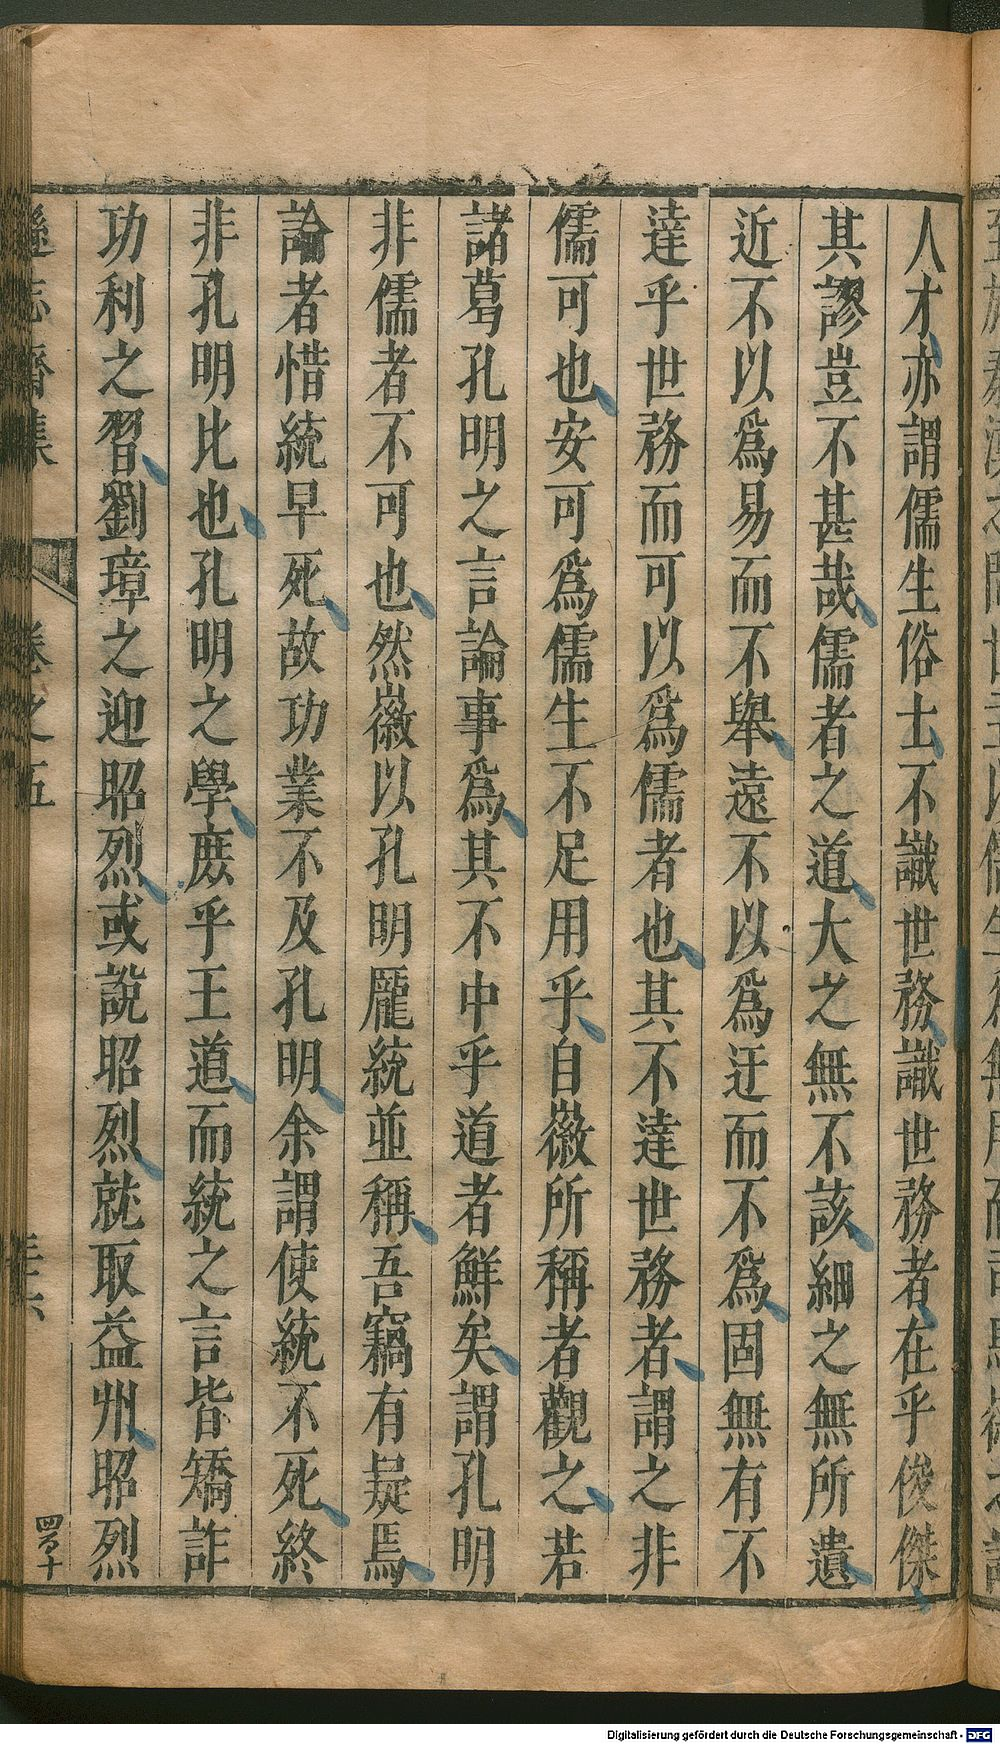 人才亦謂儒生俗士不識世務識世務者在乎俊傑
其謬豈不甚哉儒者之道大之無不該細之無所遺
近不以爲易而不舉遠不以爲迂而不爲固無有不
達乎世務而可以爲儒者也其不達世務者謂之非
儒可也安可爲儒生不足用乎自徽所稱者觀之若
諸葛孔明之言論事爲其不中乎道者鮮矣謂孔明
非儒者不可也然徽以孔明龐統並稱吾竊有疑焉
論者惜統早死故功業不及孔明余謂使統不死終
非孔明比也孔明之學庶乎王道而統之言皆矯詐
功利之習劉璋之迎昭烈或說昭烈就取益州昭烈
遜志齋集 卷之五
四百十
Digitalisierung gefördert durch die Deutsche Forschungsgemeinschaft - DFG